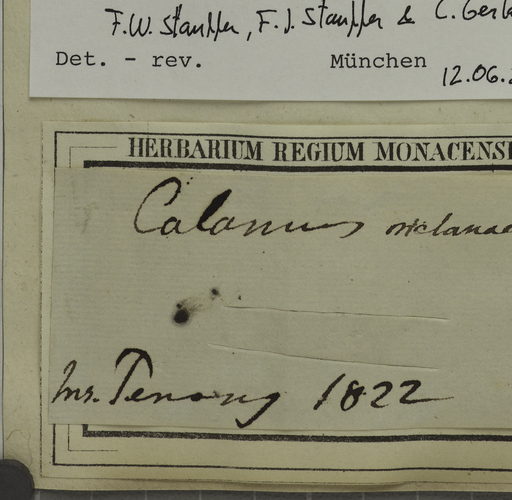 F.W. Stauffer, F.J. Stauffer & C. Gerl
Det. - rev. München 12.06.2
HERBARIUM REGIUM MONACENSE
Calamus melanac
Ins. Penang 1822